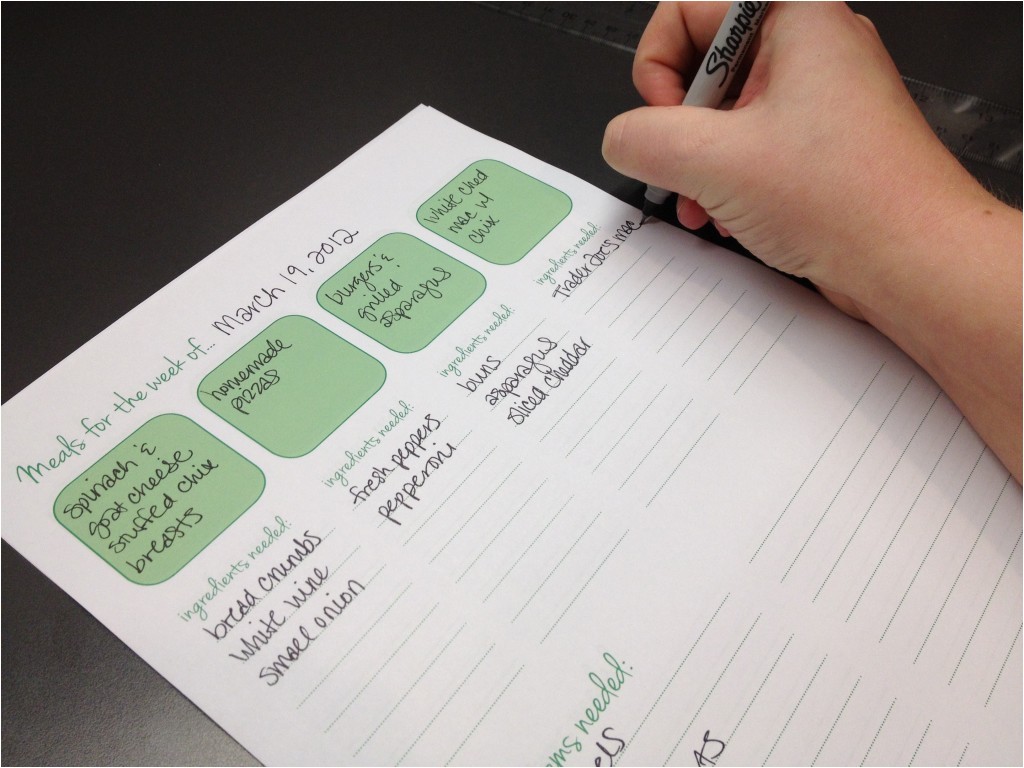 Meals for the week of... March 19, 2012
spinach &
goat cheese
stuffed chix
breasts
ingredients needed:
bread crumbs
white wine
small onion
homemade
pizzas
ingredients needed:
fresh peppers
pepperoni
burgers &
grilled
asparagus
ingredients needed:
buns
asparagus
sliced cheddar
white ched
mac w/
chix
ingredients needed:
Trader Joe's mac
needed:
Sharpie